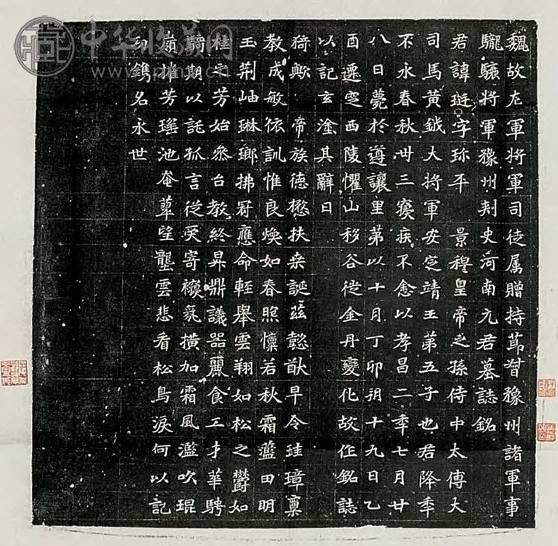 魏故左軍將軍司徒屬贈持節督豫州諸軍事
驍驤將軍豫州刺史河南元君墓誌銘
君諱珽字珎平 景穆皇帝之孫侍中太傅大
司馬黃鉞大將軍安定靖王第五子也君降年
不永春秋卅三寢疾不悆以孝昌二年七月廿
八日薨於遵讓里第以十月丁卯朔十九日乙
酉遷窆西陵懼山移谷徙金丹變化故作銘誌
以記玄塗其辭曰
猗歟 帝族德懋扶桒誕茲懿猷早令珪璋稟
教成敏依訓惟良煥如春照懍若秋霜藍田明
玉荊岫琳瑯拂冠應命輕舉雲翔如松之鬱如
桂之芳始叅台教終昇鼎議器麗食工才華騁
驥期以託孤言從寄氛橫加霜風濫吹琨
摧芳瑤池奄望壟雲悲看松鳥淚何以記
功鐫名永世
中华收藏网
www.sc001.com.cn